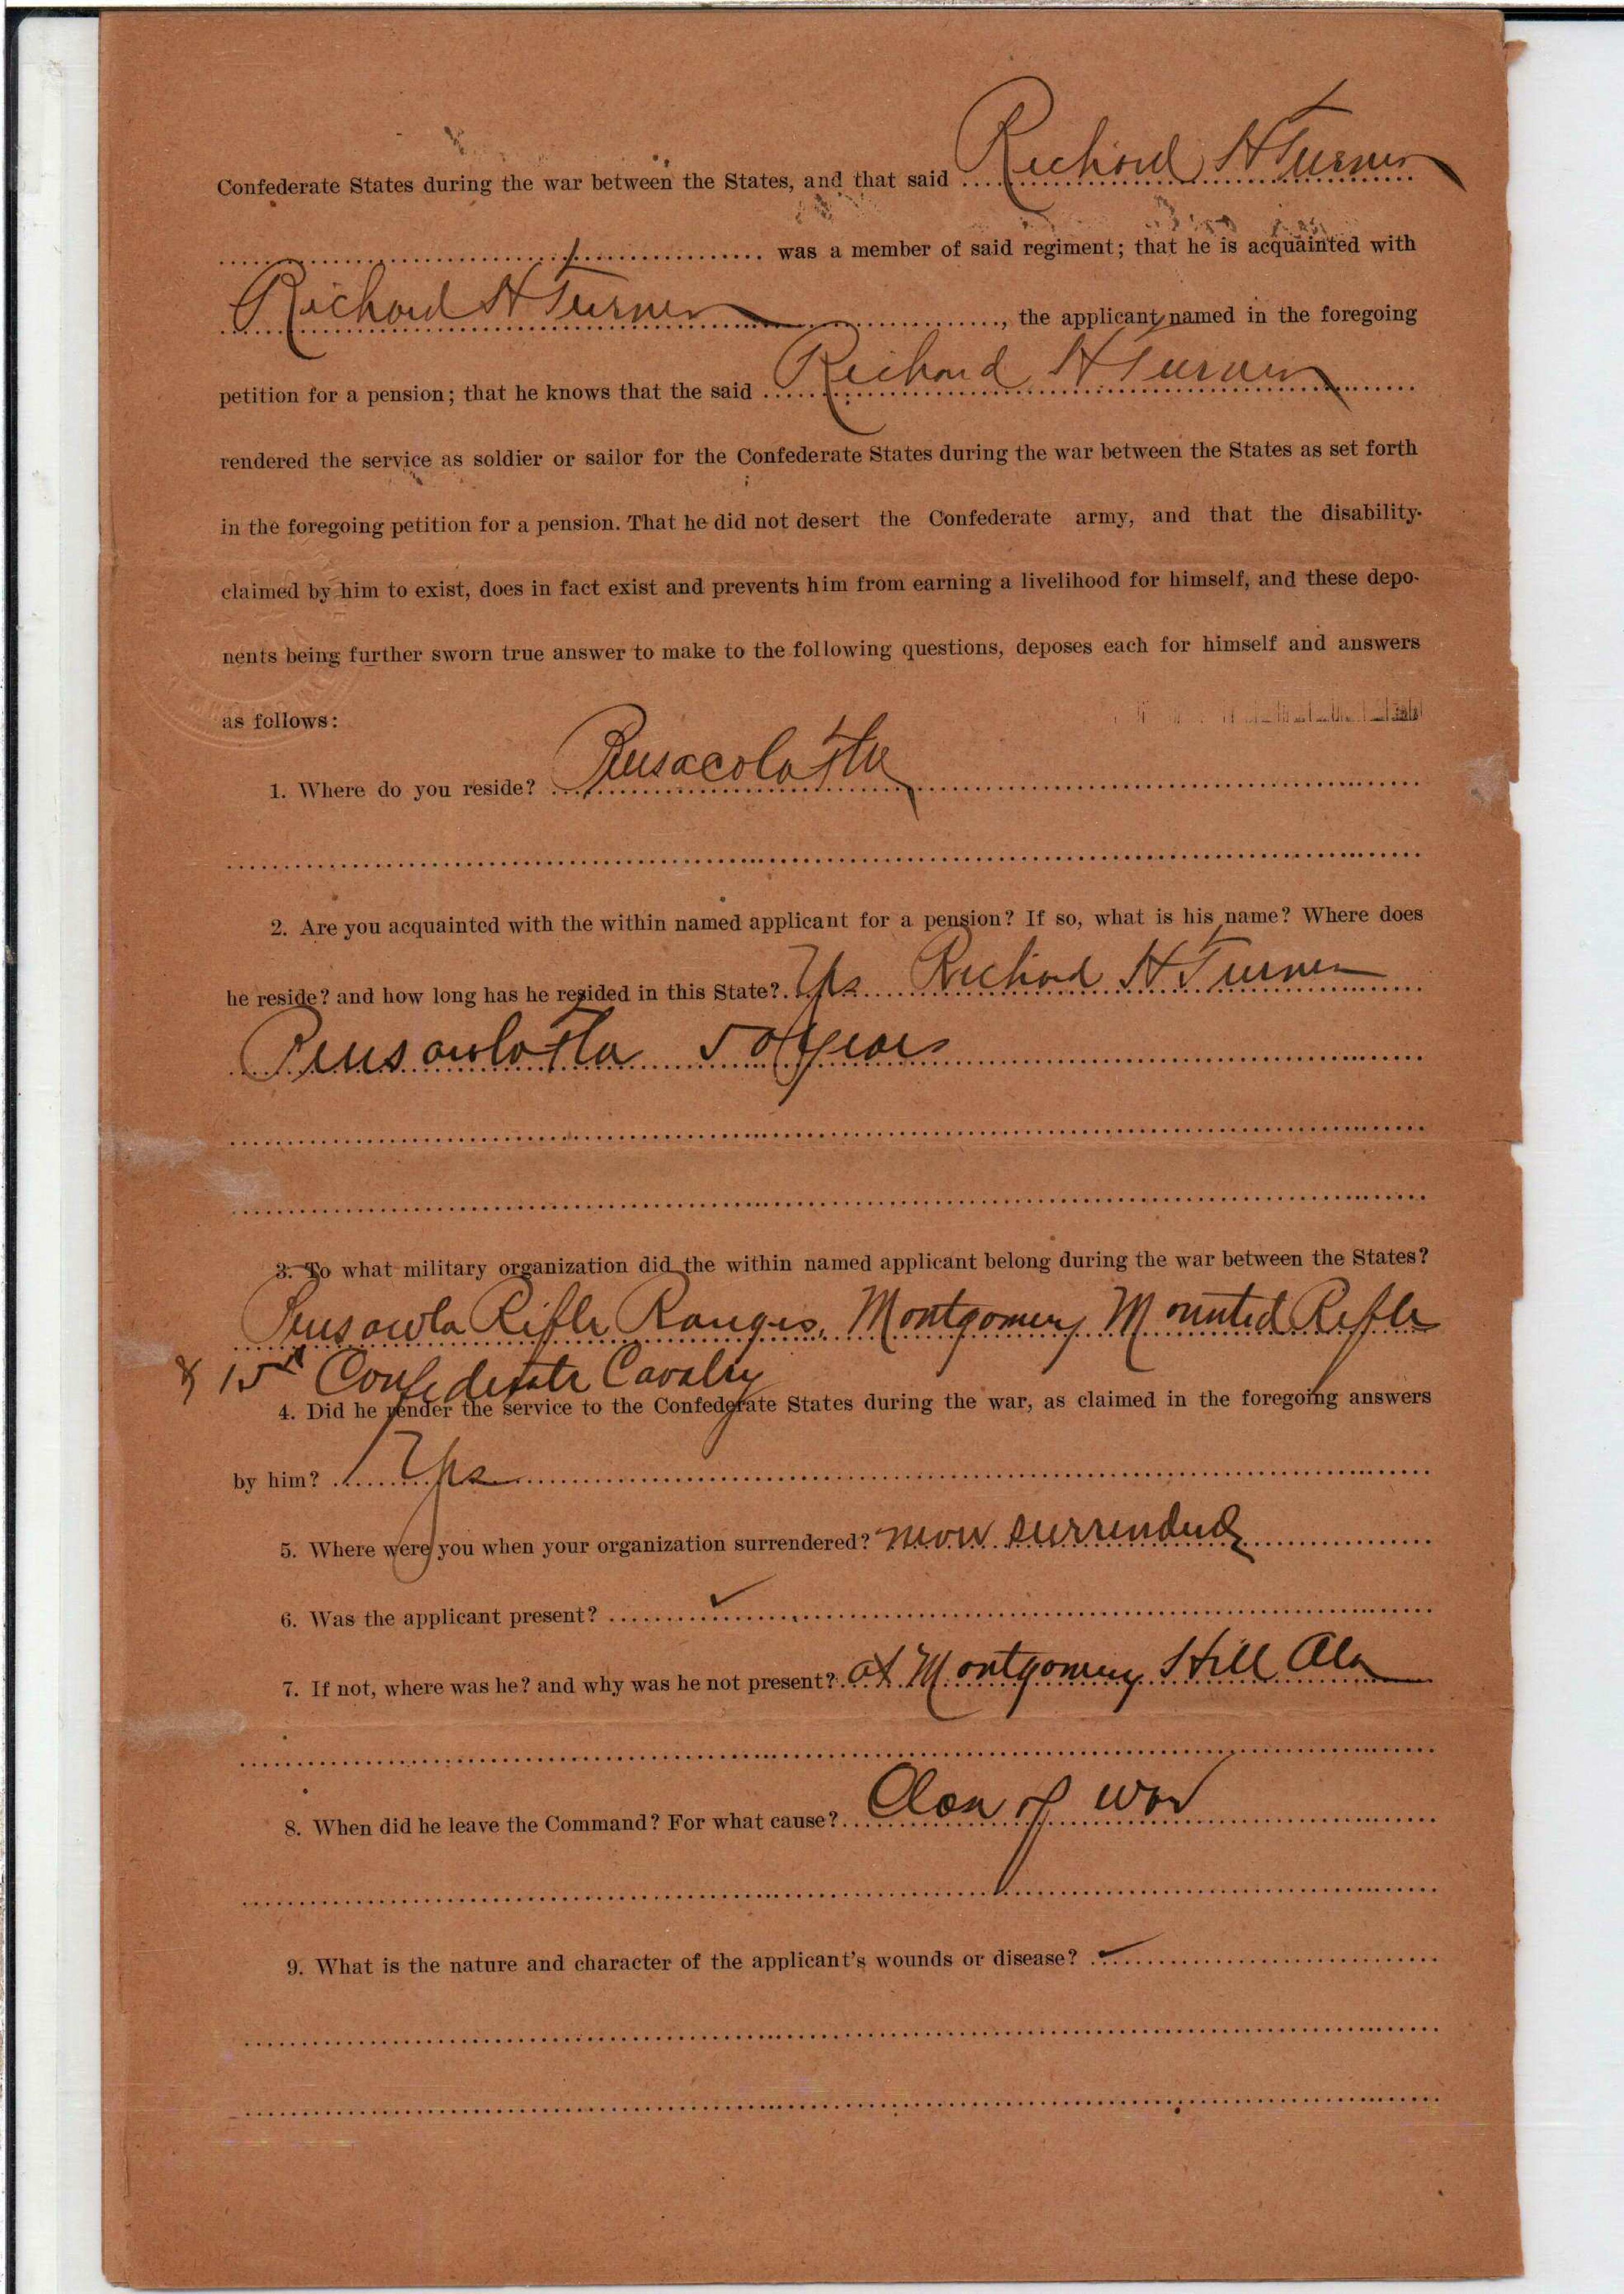 Confederate States during the war between the States, and that said Richard H Turner
was a member of said regiment; that he is acquainted with
Richard H Turner, the applicant named in the foregoing
petition for a pension; that he knows that the said Richard H Turner
rendered the service as soldier or sailor for the Confederate States during the war between the States as set forth
in the foregoing petition for a pension. That he did not desert the Confederate army, and that the disability
claimed by him to exist, does in fact exist and prevents him from earning a livelihood for himself, and these depo-
nents being further sworn true answer to make to the following questions, deposes each for himself and answers
as follows:
1. Where do you reside? Pensacola Fla
2. Are you acquainted with the within named applicant for a pension? If so, what is his name? Where does
he reside? and how long has he resided in this State? Yes Richard H Turner
Pensacola Fla 50 years
3. To what military organization did the within named applicant belong during the war between the States?
Pensacola Rifle Rangers, Montgomery Mounted Rifle
& 15th Confederate Cavalry
4. Did he render the service to the Confederate States during the war, as claimed in the foregoing answers
by him? Yes
5. Where were you when your organization surrendered? never surrendered
6. Was the applicant present?
7. If not, where was he? and why was he not present? at Montgomery Hill Ala
8. When did he leave the Command? For what cause? Close of war
9. What is the nature and character of the applicant's wounds or disease?